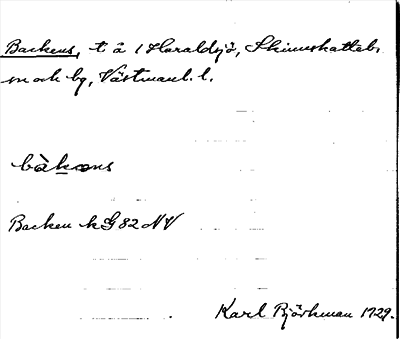 Backens, t å i Haraldsjö, Skinnskatteb.
sn och bg, Västmanl. l.
bàkæns
Backen hG 82 NV
Karl Björkman 1929.